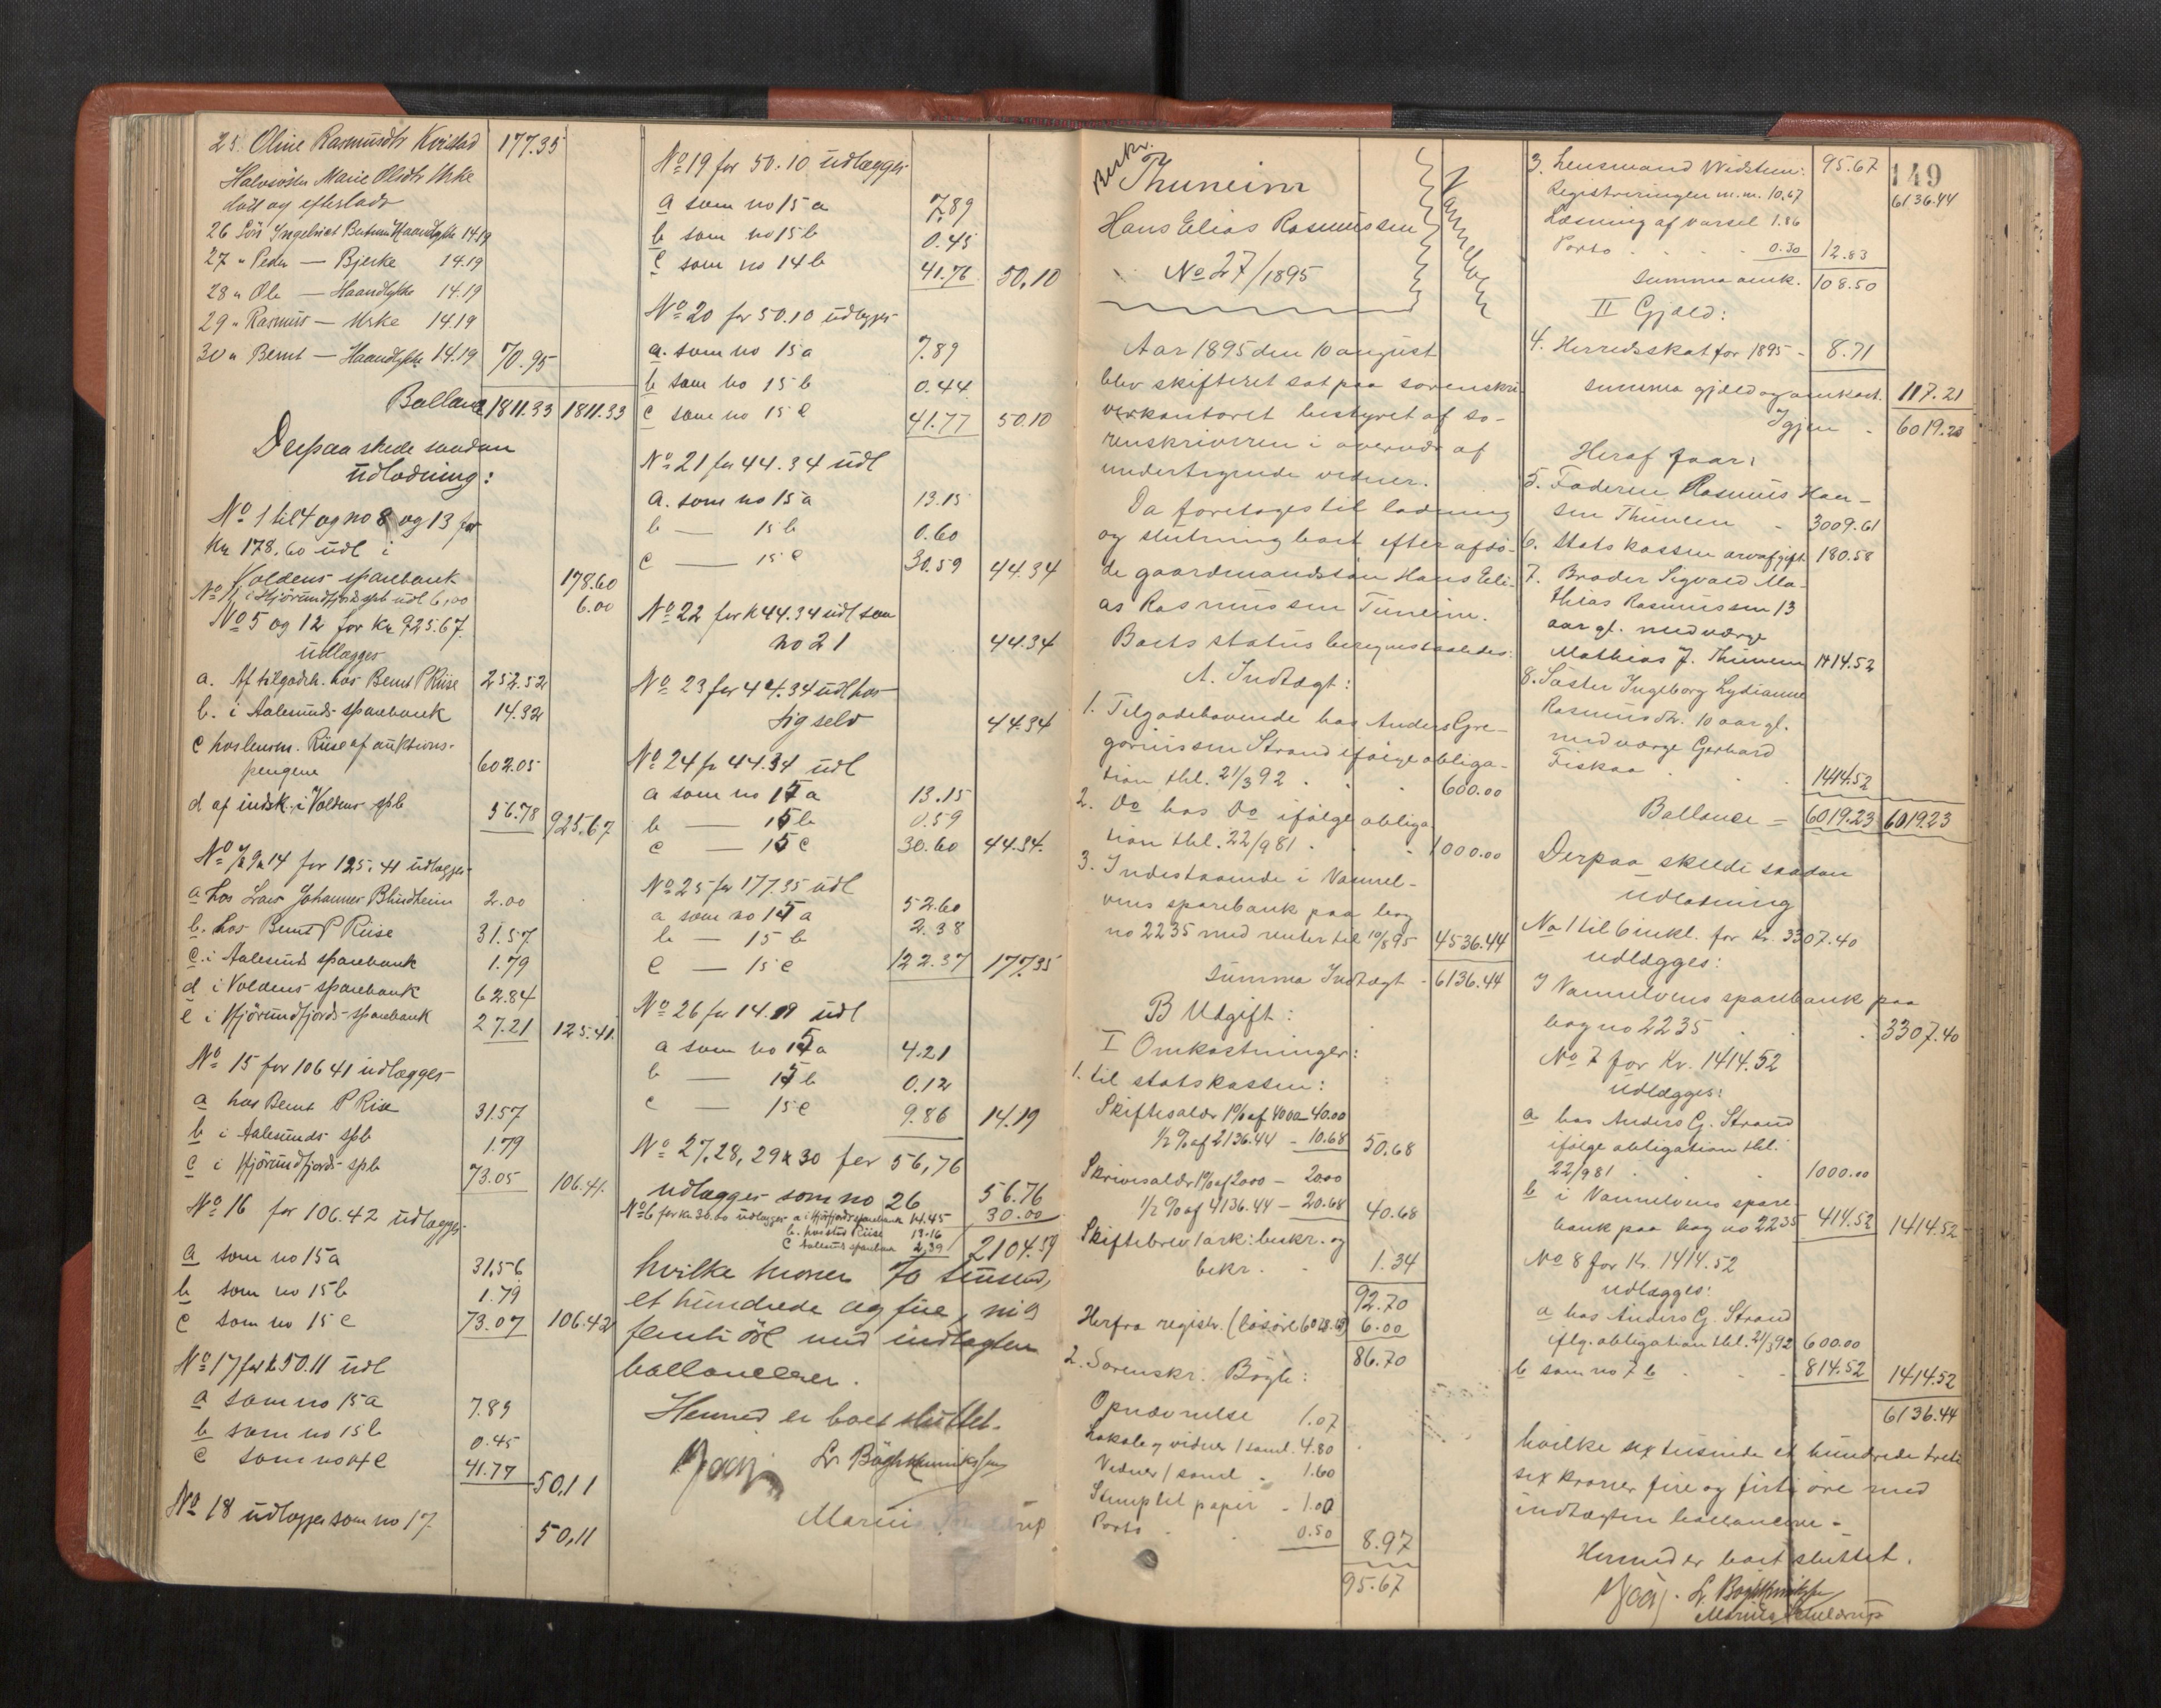 25. Oline Rasmusdtr Kvistad 177.35
Halvsöster Marie Olsdtr Urke
död og efterladt
26 Sön Ingebrigt Berntsen Haandlykke 14.19
27 " Peder — Bjerke 14.19
28 " Ole — Haandlykke 14.19
29 " Rasmus — Urke 14.19
30 " Bernt — Haandlykke 14.19 70.95
Ballance 1811.33 1811.33
Derpaa skede saadan
udlodning:
No 1 til 4 og no 8 og 13 for
Kr 178.60 udl i
Voldens sparebank 178.60
No 11 i Hjörundfjords spb udl 6,00 6.00
No 5 og 12 for Kr 925.67
udlægges
a. Af tilgodeh. hos Bernt P Riise 252.52
b. i Aalesunds sparebank 14.32
c hos lensm. Riise af auktions-
pengene 602.05
d af indsk. i Voldens spb 56.78 925.67
No 7, 9 & 14 for 125.41 udlægges
a hos Lars Johannes Blindheim 2.00
b. hos Bernt P Riise 31.57
c. i Aalesunds sparebank 1.79
d i Voldens sparebank 62.84
e i Hjörundfjords sparebank 27.21 125.41.
No 15 for 106 41 udlægges
a hos Bernt P Riise 31.57
b i Aalesunds spb 1.79
c i Hjörundfjords spb 73.05 106.41.
No 16 for 106.42 udlægges
a som no 15 a 31,56
b som no 15 b 1.79
c som no 15 c 73.07 106.42
No 17 for k 50.11 udl
a som no 15 a 7.89
b som no 15 b 0.45
c som no 14 c 41.77 50,11
No 18 udlægges som no 17 50,11
No 19 for 50.10 udlægges
a som no 15 a 7.89
b som no 15 b 0.45
c som no 14 b 41.76 50,10
No 20 for 50.10 udlægges
a. som no 15 a 7.89
b som no 15 b 0.44
c som no 15 c 41.77 50.10
No 21 for 44.34 udl
a. som no 15 a 13.15
b — 15 b 0.60
c — 15 c 30.59 44.34
No 22 for k 44.34 udl som
no 21 44.34
No 23 for 44.34 udl hos
sig selv 44.34
No 24 fr 44.34 udl
a som no 15 a 13.15
b — 15 b 0.59
c — 15 c 30.60 44.34.
No 25 for 177.35 udl
a som no 15 a 52.60
b — 15 b 2.38
c — 15 c 122.37 177.35
No 26 for 14.19 udl
a som no 15 a 4.21
b — 15 b 0.12
c — 15 c 9.86 14.19
No 27, 28, 29 & 30 for 56,76
udlægges som no 26 56.76
No 6 for kr 30.00 udlægges a i Hjörfjords sparebank 14.45 30.00
b. hos Riise 13.16
c Aalesunds sparebank 2,39 2104.59
hvilke kroner To tusend,
et hundrede og fire, ni og
femti öre med indtægten
ballancerer.
Hermed er boet sluttet.
Marius
Bekr.
Thuneim
Hans Elias Rasmussen
No 27/1895
Vannelven
Aar 1895 den 10 august
blev skifteret sat paa sorenskri-
verkontoret bestyret af so-
renskriveren i overvær af
undertegnede vidner.
Da foretoges til lodning
og slutning boet efter afdö-
de gaardmandssön Hans Eli-
as Rasmussen Tuneim.
Boets status beregnes saaledes:
A. Indtægt:
1. Tilgodehavende hos Anders Gre-
goriussen Strand ifölge obliga-
tion tbl. 21/3 92 . . 600.00
2. Do hos Do ifölge obliga
tion tbl. 22/9 81 . . 1000.00
3. Indestaaende i Vannel-
vens sparebank paa bog
no 2235 med renter til 10/8 95 4536.44
summa Indtægt - 6136.44
B Udgift:
I Omkostninger:
1. til statskassen:
Skiftesalær 1% af 4000 - 40.00
1/2 % af 2136.44 - 10.68 50.68
Skriversalær 1% af 2000 - 2000
1/2 % af 4136.44 - 20.68 40.68
Skiftebrev 1 ark: beskr. og
bekr. - 1.34
92.70
Herfra registr. 6.00
86.70
2. Sorenskr. Bögh:
Opnævnelse 1.07
Lokale og vidner 1 saml. 4.80
Vidner 1 saml - 1.60
Stemplet papir - 1.00
Porto . . 0.50 8.97
95.67
149
3. Lensmand Widsteen: 95.67 6136.44
Registreringen m.m. 10.67
Læsning af varsel 1.86
Porto . . . 0.30 12.83
Summa omk. 108.50
II Gjæld:
4. Herredsskat for 1895 - 8.71
Summa gjæld og omkost. 117.21
Igjen - 6019.23
Heraf faar:
5. Faderen Rasmus Han-
sen Thuneim - 3009.61
6. Statskassen arvafgift 180.58
7. Broder Sigvald Ma-
thias Rasmussen 13
aar gl. med værge
Mathias J. Thuneim 1414.52
8. Söster Ingeborg Lydianne
Rasmusdtr. 10 aar gl.
med værge Gerhard
Fiskaa . . . 1414.52
Ballance = 6019.23 6019.23
Derpaa skede saadan
udlodning
No 1 til 6 inkl. for Kr. 3307.40
udlægges:
I Vannelvens sparebank paa
bog no 2235 . . 3307.40
No 7 for Kr. 1414.52
udlægges:
a hos Anders G. Strand
ifölge obligation tbl.
22/9 81 . . 1000.00
b i Vannelvens spare-
bank paa bog no 2235 414.52 1414.52
No 8 for Kr. 1414.52
udlægges:
a hos Anders G. Strand
iflg. obligation tbl. 21/3 92 600.00
b som no 7 b . . - 814.52 1414.52
6136.44
hvilke sex tusinde et hundrede treti
sex kroner fire og firti öre med
indtægten ballancere -
Hermed er boet sluttet.
Marius Schelderup